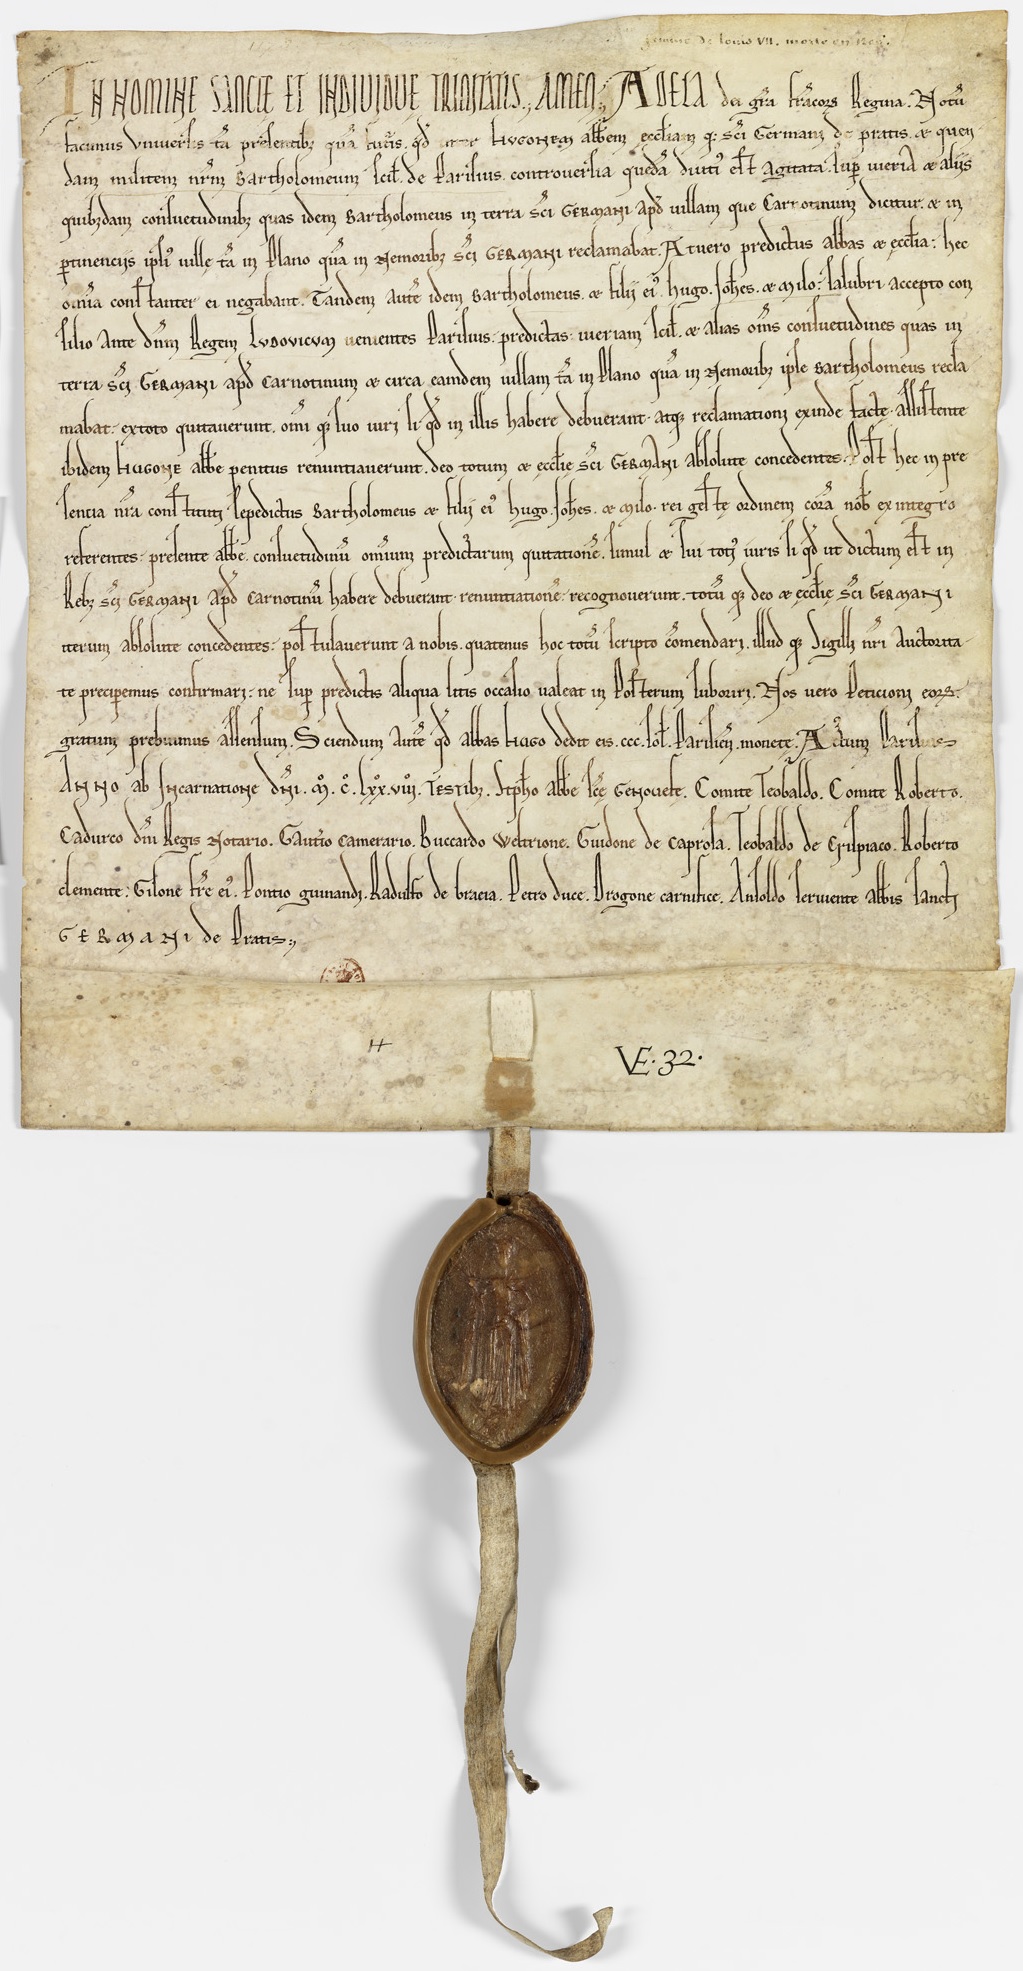 femme de Louis VII. morte en 1206.
IN NOMINE SANCTE ET INDIVIDUE TRINITATIS. AMEN. ADELA dei gr̃a francoꝝ Regina. Notũ
facimus Vniuersis tã presentibꝫ quã futuris. qđ inter HVGONEM abb̃em ęccl̃iam qꝫ sc̃i Germani de pratis. & quen
dam militem nr̃m Bartholomeum scil. de Parisius. controuersia quedã diutiꝰ est agitata. sup ueriã & alijs
quibꝫdam consuetudinibꝫ quas idem Bartholomeus in terra sc̃i GERMANI apđ uillam que Car otinum dicitur. & in
ꝑtinencijs ipsiꝰ uillę tã in plano quã in Nemoribꝫ sc̃i GERMANI reclamabat. At uero predictus abbas & ęccl̃ia: hec
om̃ia constanter ei negabant. Tandem autẽ idem Bartholomeus. & filij eiꝰ. hugo. Joh̃es. & milo: salubri accepto con
silio ante dñm Regem LVDOVICVM uenientes Parisius: predictas ueriam scil. & alias om̃s consuetudines quas in
terra sc̃i GERMANI apđ Carnotinum & circa eamdem uillam tã in plano quã in Nemoribꝫ ipse Bartholomeus recla
mabat: ex toto quitauerunt. om̃i qꝫ suo iuri si qđ in illis habere debuerant. atqꝫ reclamationi exinde facte. assistente
ibidem HUGONE abb̃e penitus renuntiauerunt. deo totum & ęccl̃ie sc̃i GERMANI absolute concedentes. Post hec in pre
sencia nr̃a constituti sepedictus Bartholomeus & filij eiꝰ hugo. Joh̃es. & milo. rei geste ordinem corã nob̃ ex integro
referentes: presente abb̃e. consuetudinũ omnium predictarum quitationẽ. simul & sui totiꝰ iuris si qđ ut dictum est in
Rebꝫ sc̃i GERMANI apđ Carnotinũ habere debuerant. renuntiationẽ: recognouerunt. totũ qꝫ deo & ęccl̃ię sc̃i GERMANI
iterum absolute concedentes: postulauerunt a nobis. quatenus hoc totũ scripto cõmendari. illud qꝫ Sigilli nr̃i auctorita
te preciperemus confirmari: ne sup predictis aliqua litis occasio ualeat in posterum suboriri. Nos uero Peticioni eoꝝ:
gratum prebuimus assensum. Sciendum autẽ qđ abbas HUGO dedit eis .ccc. sol. Parisieñ. monete. Actum Parisius
ANNO ab Incarnatione dñi. M̊. C̊. lxx. viii. TESTIbꝫ. Stph̃o abb̃e sc̃ę GENOuefe. Comite Teobaldo. Comite Roberto.
Cadurco dñi Regis Notario. Gautio camerario. Buccardo Veltrione. Guidone de caprosa. Teobaldo de Crispiaco. Roberto
clemente. Gilone fr̃e eiꝰ. Pontio guinandi. Radulfo de bracia. Petro duce. Drogone carnifice. Ansoldo seruiente abb̃is sancti
GERMANI de Pratis.
H
VE. 32.